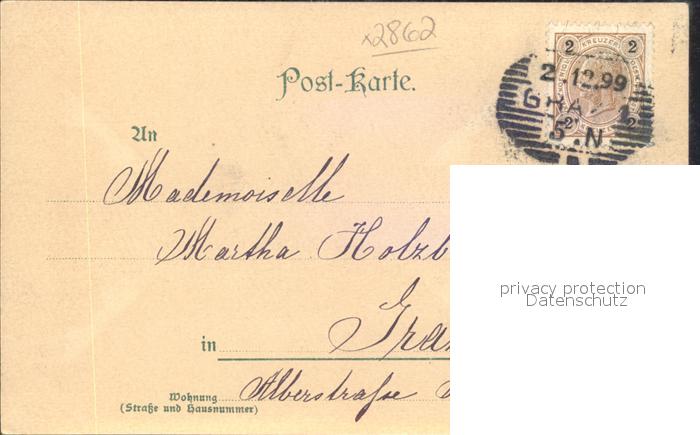 x2862
Post-Karte.
2 KREUZER 2
2.12.99
GRAZ 1
2 2
5.N
An
Mademoiselle
Martha Holzb
privacy protection
Datenschutz
in Gra
Wohnung
(Straße und Hausnummer)
Alberstraße